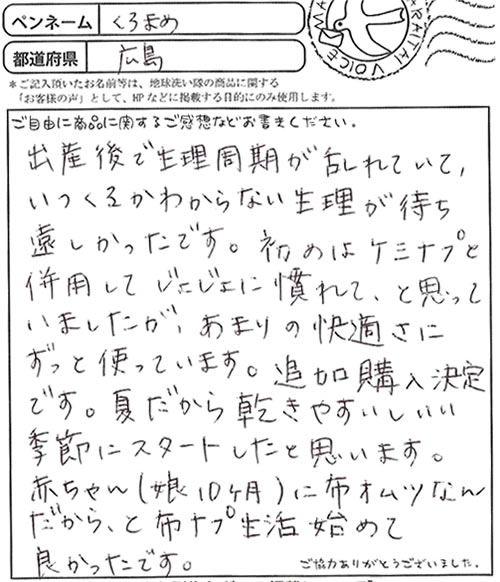 ペンネーム くろまめ
都道府県 広島
＊ご記入頂いたお名前等は、地球洗い隊の商品に関する
「お客様の声」として、HPなどに掲載する目的にのみ使用します。
ご自由に商品に関するご感想などお書きください。
出産後で生理周期が乱れていて,
いつくるかわからない生理が待ち
遠しかったです。初めはケミナプと
併用してじょじょに慣れて、と思って
いましたが、あまりの快適さに
ずっと使っています。追加購入決定
です。夏だから乾きやすいしいい
季節にスタートしたと思います。
赤ちゃん(娘10ヶ月)に布オムツなん
だから、と布ナプ生活始めて
良かったです。
ご協力ありがとうございました。